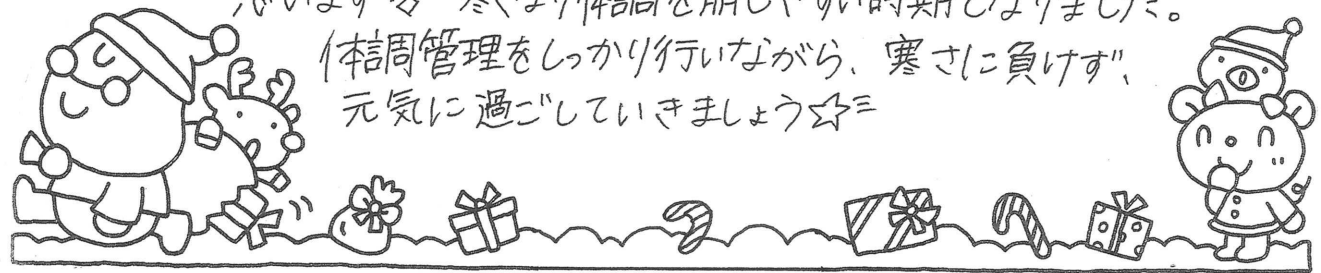 思います☆ 寒くなり体調を崩しやすい時期となりました。
体調管理をしっかり行いながら、寒さに負けず、
元気に過ごしていきましょう☆